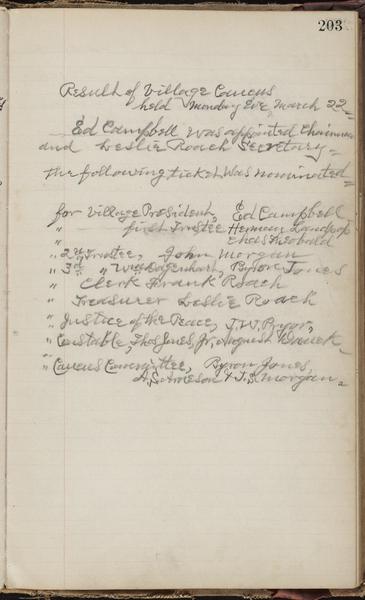 203
Result of Village Caucus
held Monday Eve, March 22
Ed Campbell was appointed Chairman
and Leslie Roach Secretary
the following ticket was nominated
for Village President, Ed Campbell
" first Trustee Herman
Chas Theobald
" 2nd Trustee, John Morgan
" 3rd " Will Dagenhart, Byron Jones
" Clerk Frank Roach
" Treasurer Leslie Roach
" Justice of the Peace, J.W. Pryor,
" Constable, Thos Jones, Jr, August
" Caucus Committee, Byron Jones,
A.S. Arneson & J.S. Morgan.